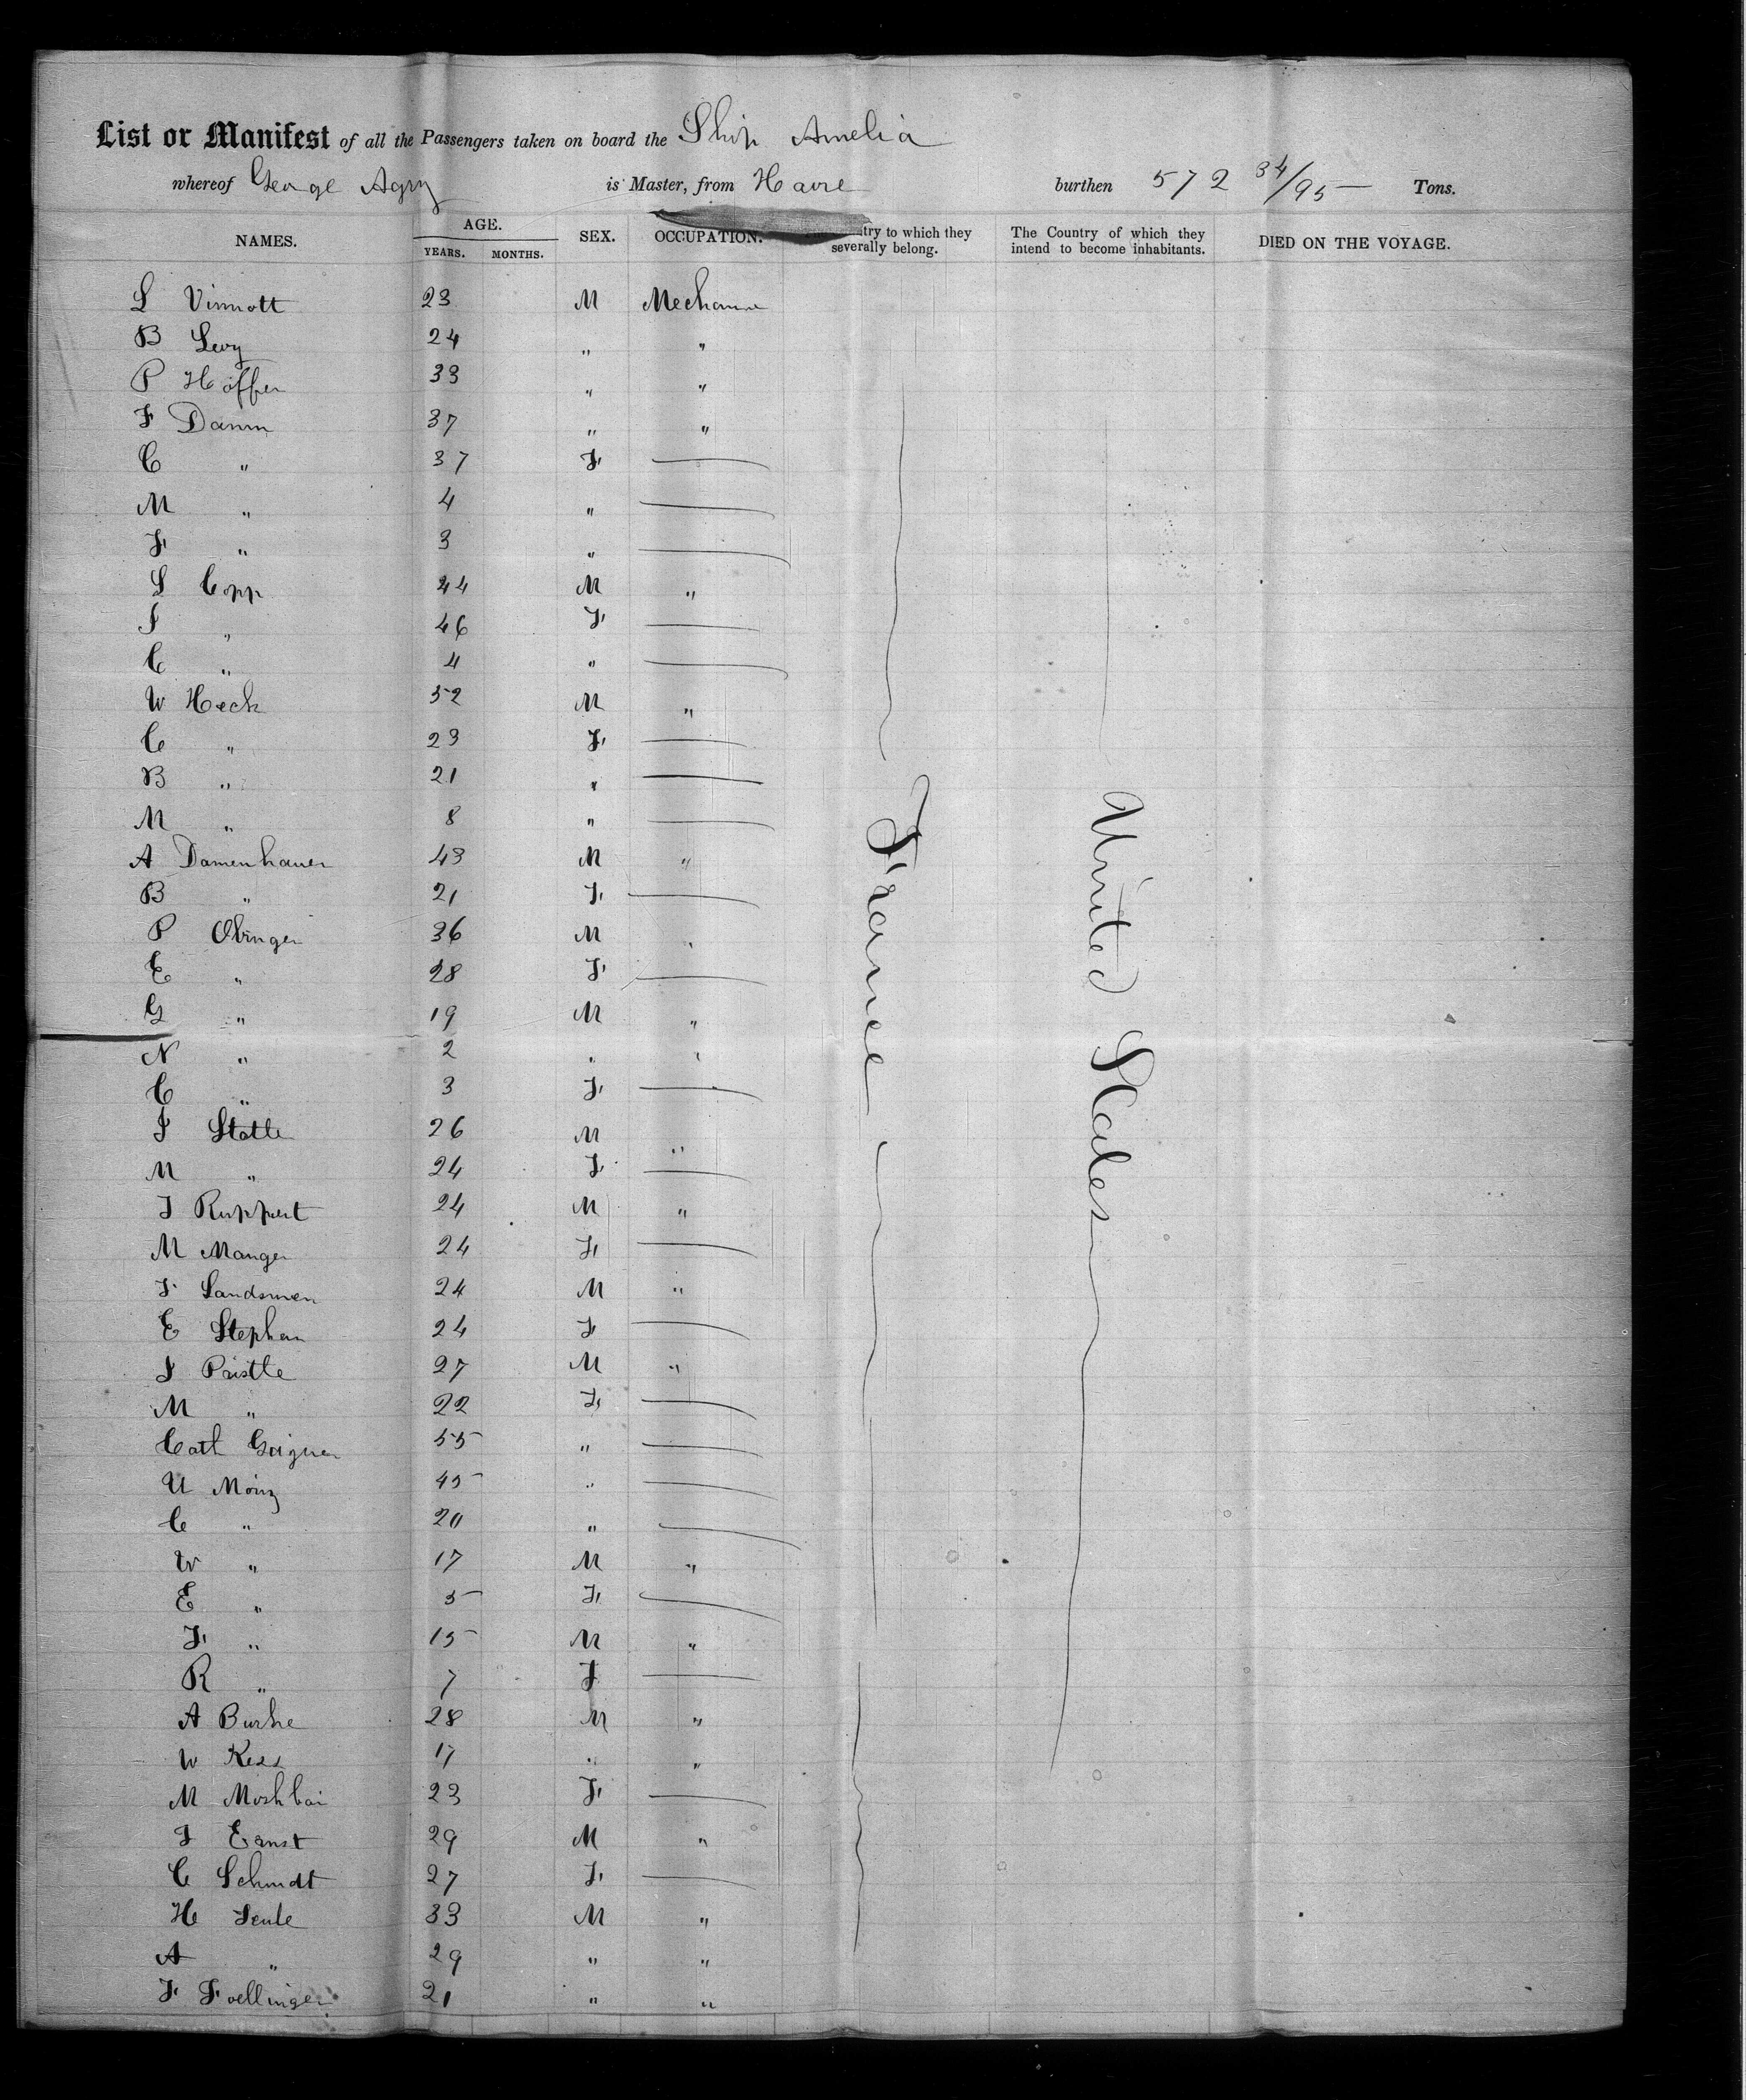 List or Manifest of all the Passengers taken on board the Ship Amelia
whereof George Agry is Master, from Havre burthen 572 34/95 Tons.
NAMES. AGE. YEARS. MONTHS. SEX. OCCUPATION. try to which they severally belong. The Country of which they intend to become inhabitants. DIED ON THE VOYAGE.
L Vinnott 23 M Mechanic
B Levy 24 " "
P Hoffer 33 " "
F Damm 37 " "
C " 37 F
M " 4 "
F " 3 "
L Copp 44 M "
S " 46 F
C " 4 "
W Heck 52 M "
C " 23 F
B " 21 "
M " 8 "
A Damenhauer 43 M "
B " 21 F
P Obinger 36 M "
E " 28 F
G " 19 M "
N " 2 " "
C " 3 F
J Statle 26 M "
M " 24 F
J Ruppert 24 M "
M Manger 24 F
F Landsmen 24 M "
E Stephan 24 F
J Pristle 27 M "
M " 22 F
Cath 55 "
U Moinz 45 "
C " 20 "
W " 17 M "
E " 5 F
F " 15 M "
R " 7 F
A Burke 28 M "
W Kess 17 " "
M Moshbai 23 F
J Ernst 29 M "
C Schmdt 27 F
H Seule 33 M "
A " 29 " "
F Foellinger 21 " "
France
United States